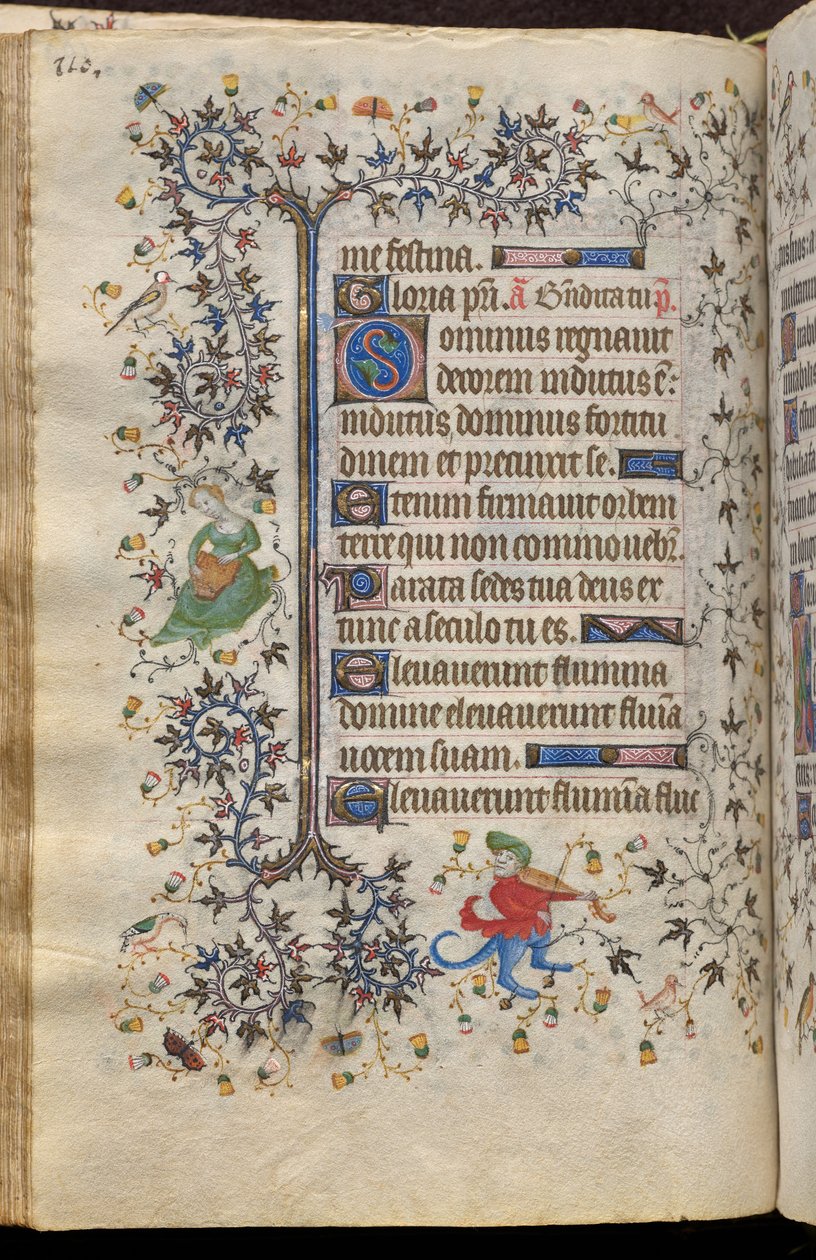 me festina.
Gloria pr̄i. ā Bn̄dicta tu p̄.
Dominus regnauit
decorem indutus ē:
indutus dominus fortitu
dinem et precinxit se.
Etenim firmauit orbem
terre qui non commouebr̄.
Parata sedes tua deus ex
tunc a seculo tu es.
Eleuauerunt flumina
domine eleuauerunt flūīa
uocem suam.
Eleuauerunt flumīa fluc